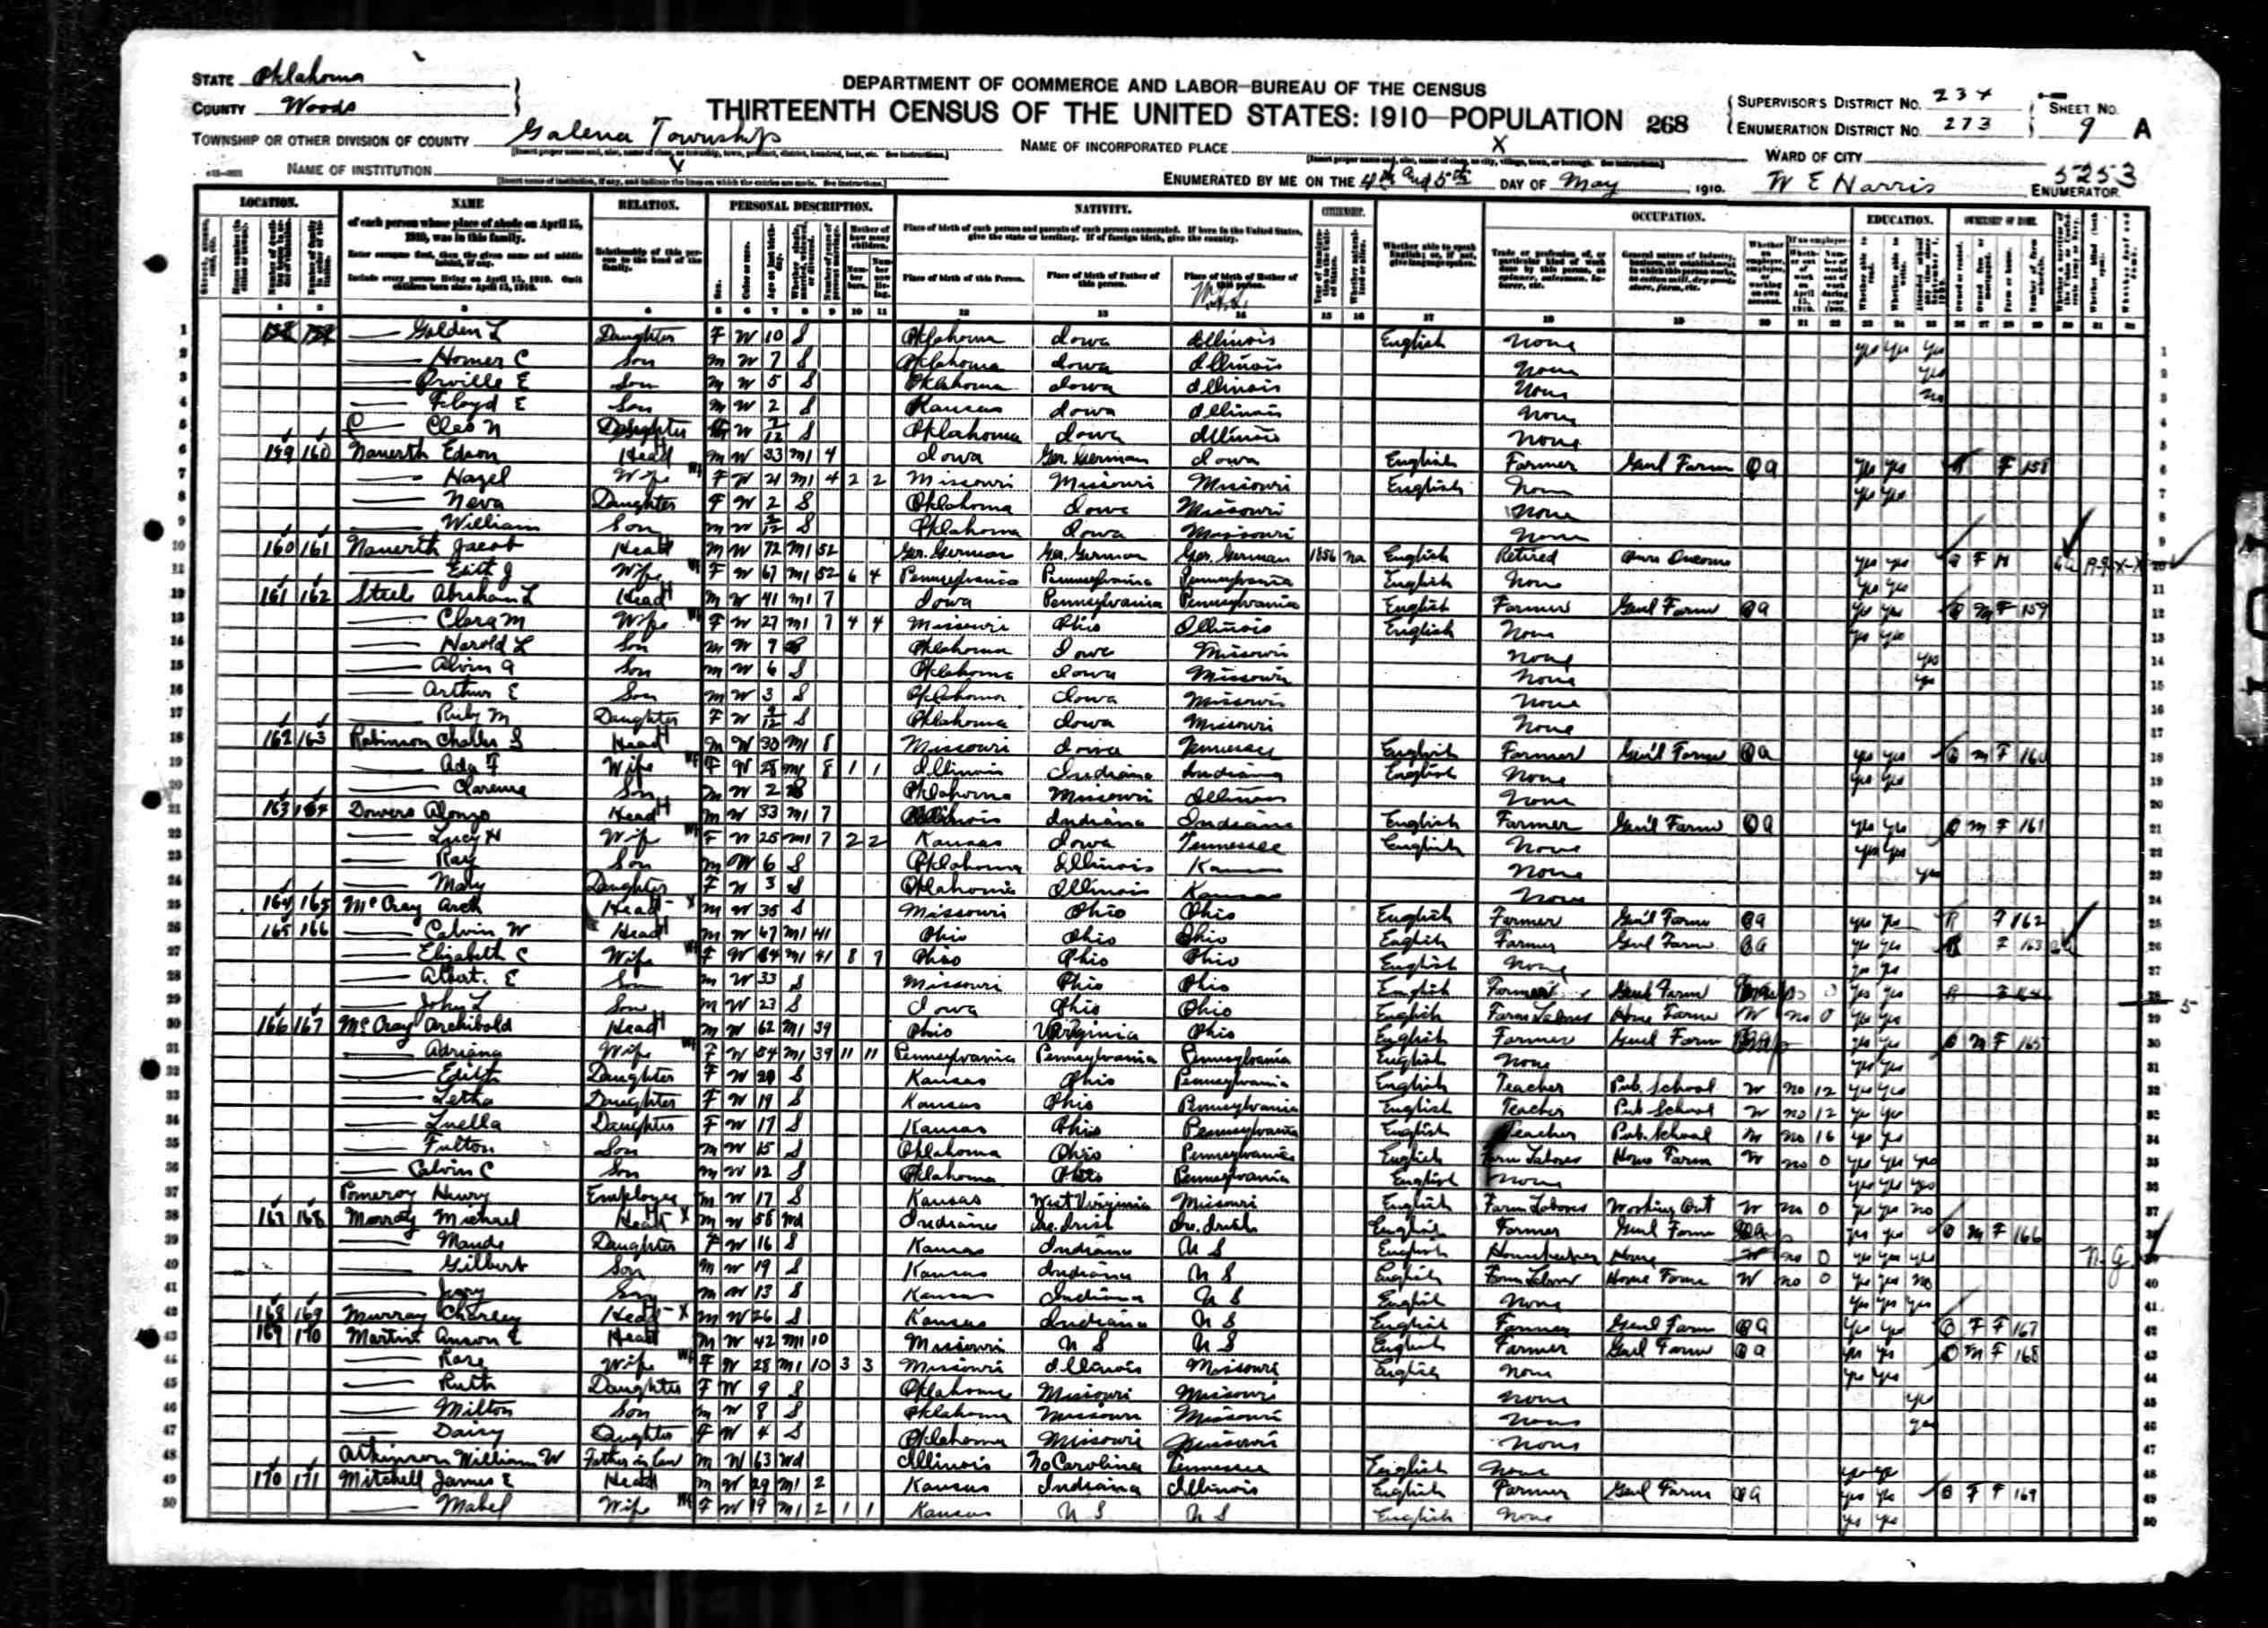 STATE Oklahoma
COUNTY Woods
TOWNSHIP OR OTHER DIVISION OF COUNTY Galena Township
NAME OF INSTITUTION X
DEPARTMENT OF COMMERCE AND LABOR—BUREAU OF THE CENSUS
THIRTEENTH CENSUS OF THE UNITED STATES: 1910—POPULATION 268
NAME OF INCORPORATED PLACE X
ENUMERATED BY ME ON THE 4th and 5th DAY OF May, 1910.
SUPERVISOR'S DISTRICT No. 234
ENUMERATION DISTRICT No. 273
SHEET No. 9 A
WARD OF CITY
W E Harris ENUMERATOR
5253
LOCATION. NAME RELATION. PERSONAL DESCRIPTION. NATIVITY. CITIZENSHIP. OCCUPATION. EDUCATION. OWNERSHIP OF HOME.
of each person whose place of abode on April 15, 1910, was in this family.
Enter surname first, then the given name and middle initial, if any.
Include every person living on April 15, 1910. Omit children born since April 15, 1910.
Relationship of this person to the head of the family.
Place of birth of each person and parents of each person enumerated. If born in the United States, give the state or territory. If of foreign birth, give the country.
Place of birth of this Person. Place of birth of Father of this person. Place of birth of Mother of this person.
Whether able to speak English; or, if not, give language spoken.
1 Golden L Daughter F W 10 S Oklahoma Iowa Illinois English None yes yes yes
2 Homer C Son M W 7 S Oklahoma Iowa Illinois None yes
3 Orville E Son M W 5 S Oklahoma Iowa Illinois None no
4 Floyd E Son M W 2 S Kansas Iowa Illinois None
5 Cleo N Daughter W S Oklahoma Iowa Illinois None
6 159 160 Nauerth Edson Head M W 33 M1 4 Iowa Ger. German Iowa English Farmer Genl Farm OA yes yes R F 158
7 Hazel Wife F W 21 M1 4 2 2 Missouri Missouri Missouri English None yes yes
8 Neva Daughter F W 2 S Oklahoma Iowa Missouri None
9 William Son M W S Oklahoma Iowa Missouri None
10 160 161 Nauerth Jacob Head M W 72 M1 52 Ger. German Ger. German Ger. German 1856 na English Retired Own Income yes yes O F H
11 Wife F W 67 M1 52 6 4 Pennsylvania Pennsylvania Pennsylvania English None yes yes
12 161 162 Steele Abraham L Head M W 41 M1 7 Iowa Pennsylvania Pennsylvania English Farmer Genl Farm OA yes yes O M F 159
13 Clara M Wife F W 27 M1 7 4 4 Missouri Ohio Illinois English None yes yes
14 Harold L Son M W 7 S Oklahoma Iowa Missouri None yes
15 Alvin A Son M W 6 S Oklahoma Iowa Missouri None yes
16 Arthur E Son M W 3 S Oklahoma Iowa Missouri None
17 Ruby M Daughter F W S Oklahoma Iowa Missouri None
18 162 163 Robinson Charles S Head M W 30 M1 8 Missouri Iowa Tennessee English Farmer Gen'l Farm OA yes yes O M F 160
19 Ada F Wife F W 28 M1 8 1 1 Illinois Indiana Indiana English None yes yes
20 Clarence Son M W 2 S Oklahoma Missouri Illinois None
21 163 164 Dowers Alonzo Head M W 33 M1 7 Illinois Indiana Indiana English Farmer Gen'l Farm OA yes yes O M F 161
22 Lucy H Wife F W 25 M1 7 2 2 Kansas Iowa Tennessee English None yes yes
23 Ray Son M W 6 S Oklahoma Illinois Kansas None yes
24 Mary Daughter F W 3 S Oklahoma Illinois Kansas None
25 164 165 McCray Arch Head M W 35 S Missouri Ohio Ohio English Farmer Gen'l Farm OA yes yes R F 162
26 165 166 Calvin W Head M W 67 M1 41 Ohio Ohio Ohio English Farmer Genl Farm OA yes yes R F 163
27 Elizabeth C Wife F W 64 M1 41 8 7 Ohio Ohio Ohio English None yes yes
28 Albert. E Son M W 33 S Missouri Ohio Ohio English Farmer Genl Farm yes yes
29 John L Son M W 23 S Iowa Ohio Ohio English Farm Laborer Home Farm W no 0 yes yes
30 166 167 McCray Archibald Head M W 62 M1 39 Ohio Virginia Ohio English Farmer Genl Farm yes yes O M F 165
31 Adriana Wife F W 54 M1 39 11 11 Pennsylvania Pennsylvania Pennsylvania English None yes yes
32 Edith Daughter F W S Kansas Ohio Pennsylvania English Teacher Pub. School W no 12 yes yes
33 Letha Daughter F W 19 S Kansas Ohio Pennsylvania English Teacher Pub School W no 12 yes yes
34 Luella Daughter F W 17 S Kansas Ohio Pennsylvania English Teacher Pub. School W no 16 yes yes
35 Fulton Son M W 15 S Oklahoma Ohio Pennsylvania English Farm Laborer Home Farm W no 0 yes yes yes
36 Calvin C Son M W 12 S Oklahoma Ohio Pennsylvania English None yes yes yes
37 Pomeroy Henry Employee M W 17 S Kansas West Virginia Missouri English Farm Laborer Working Out W no 0 yes yes no
38 167 168 Murray Michael Head M W 58 Wd Indiana Ire. Irish Ire. Irish English Farmer Genl Farm yes yes O M F 166
39 Maude Daughter F W 16 S Kansas Indiana U S English Housekeeper Home W no 0 yes yes yes
40 Gilbert Son M W 19 S Kansas Indiana U S English Farm Labor Home Farm W no 0 yes yes no
41 Jerry Son M W 13 S Kansas Indiana U S English None yes yes yes
42 168 169 Murray Charley Head M W 26 S Kansas Indiana U S English Farmer Genl Farm OA yes yes O F F 167
43 169 170 Martin Anson E Head M W 42 M1 10 Missouri U S U S English Farmer Genl Farm OA yes yes O M F 168
44 Rose Wife F W 28 M1 10 3 3 Missouri Illinois Missouri English None yes yes
45 Ruth Daughter F W 9 S Oklahoma Missouri Missouri None yes
46 Milton Son M W 8 S Oklahoma Missouri Missouri None yes
47 Daisy Daughter F W 4 S Oklahoma Missouri Missouri None
48 Atkinson William W Father in law M W 63 Wd Illinois No Carolina Tennessee English None yes yes
49 170 171 Mitchell James E Head M W 29 M1 2 Kansas Indiana Illinois English Farmer Genl Farm OA yes yes O F F 169
50 Mabel Wife F W 19 M1 2 1 1 Kansas U S U S English None yes yes